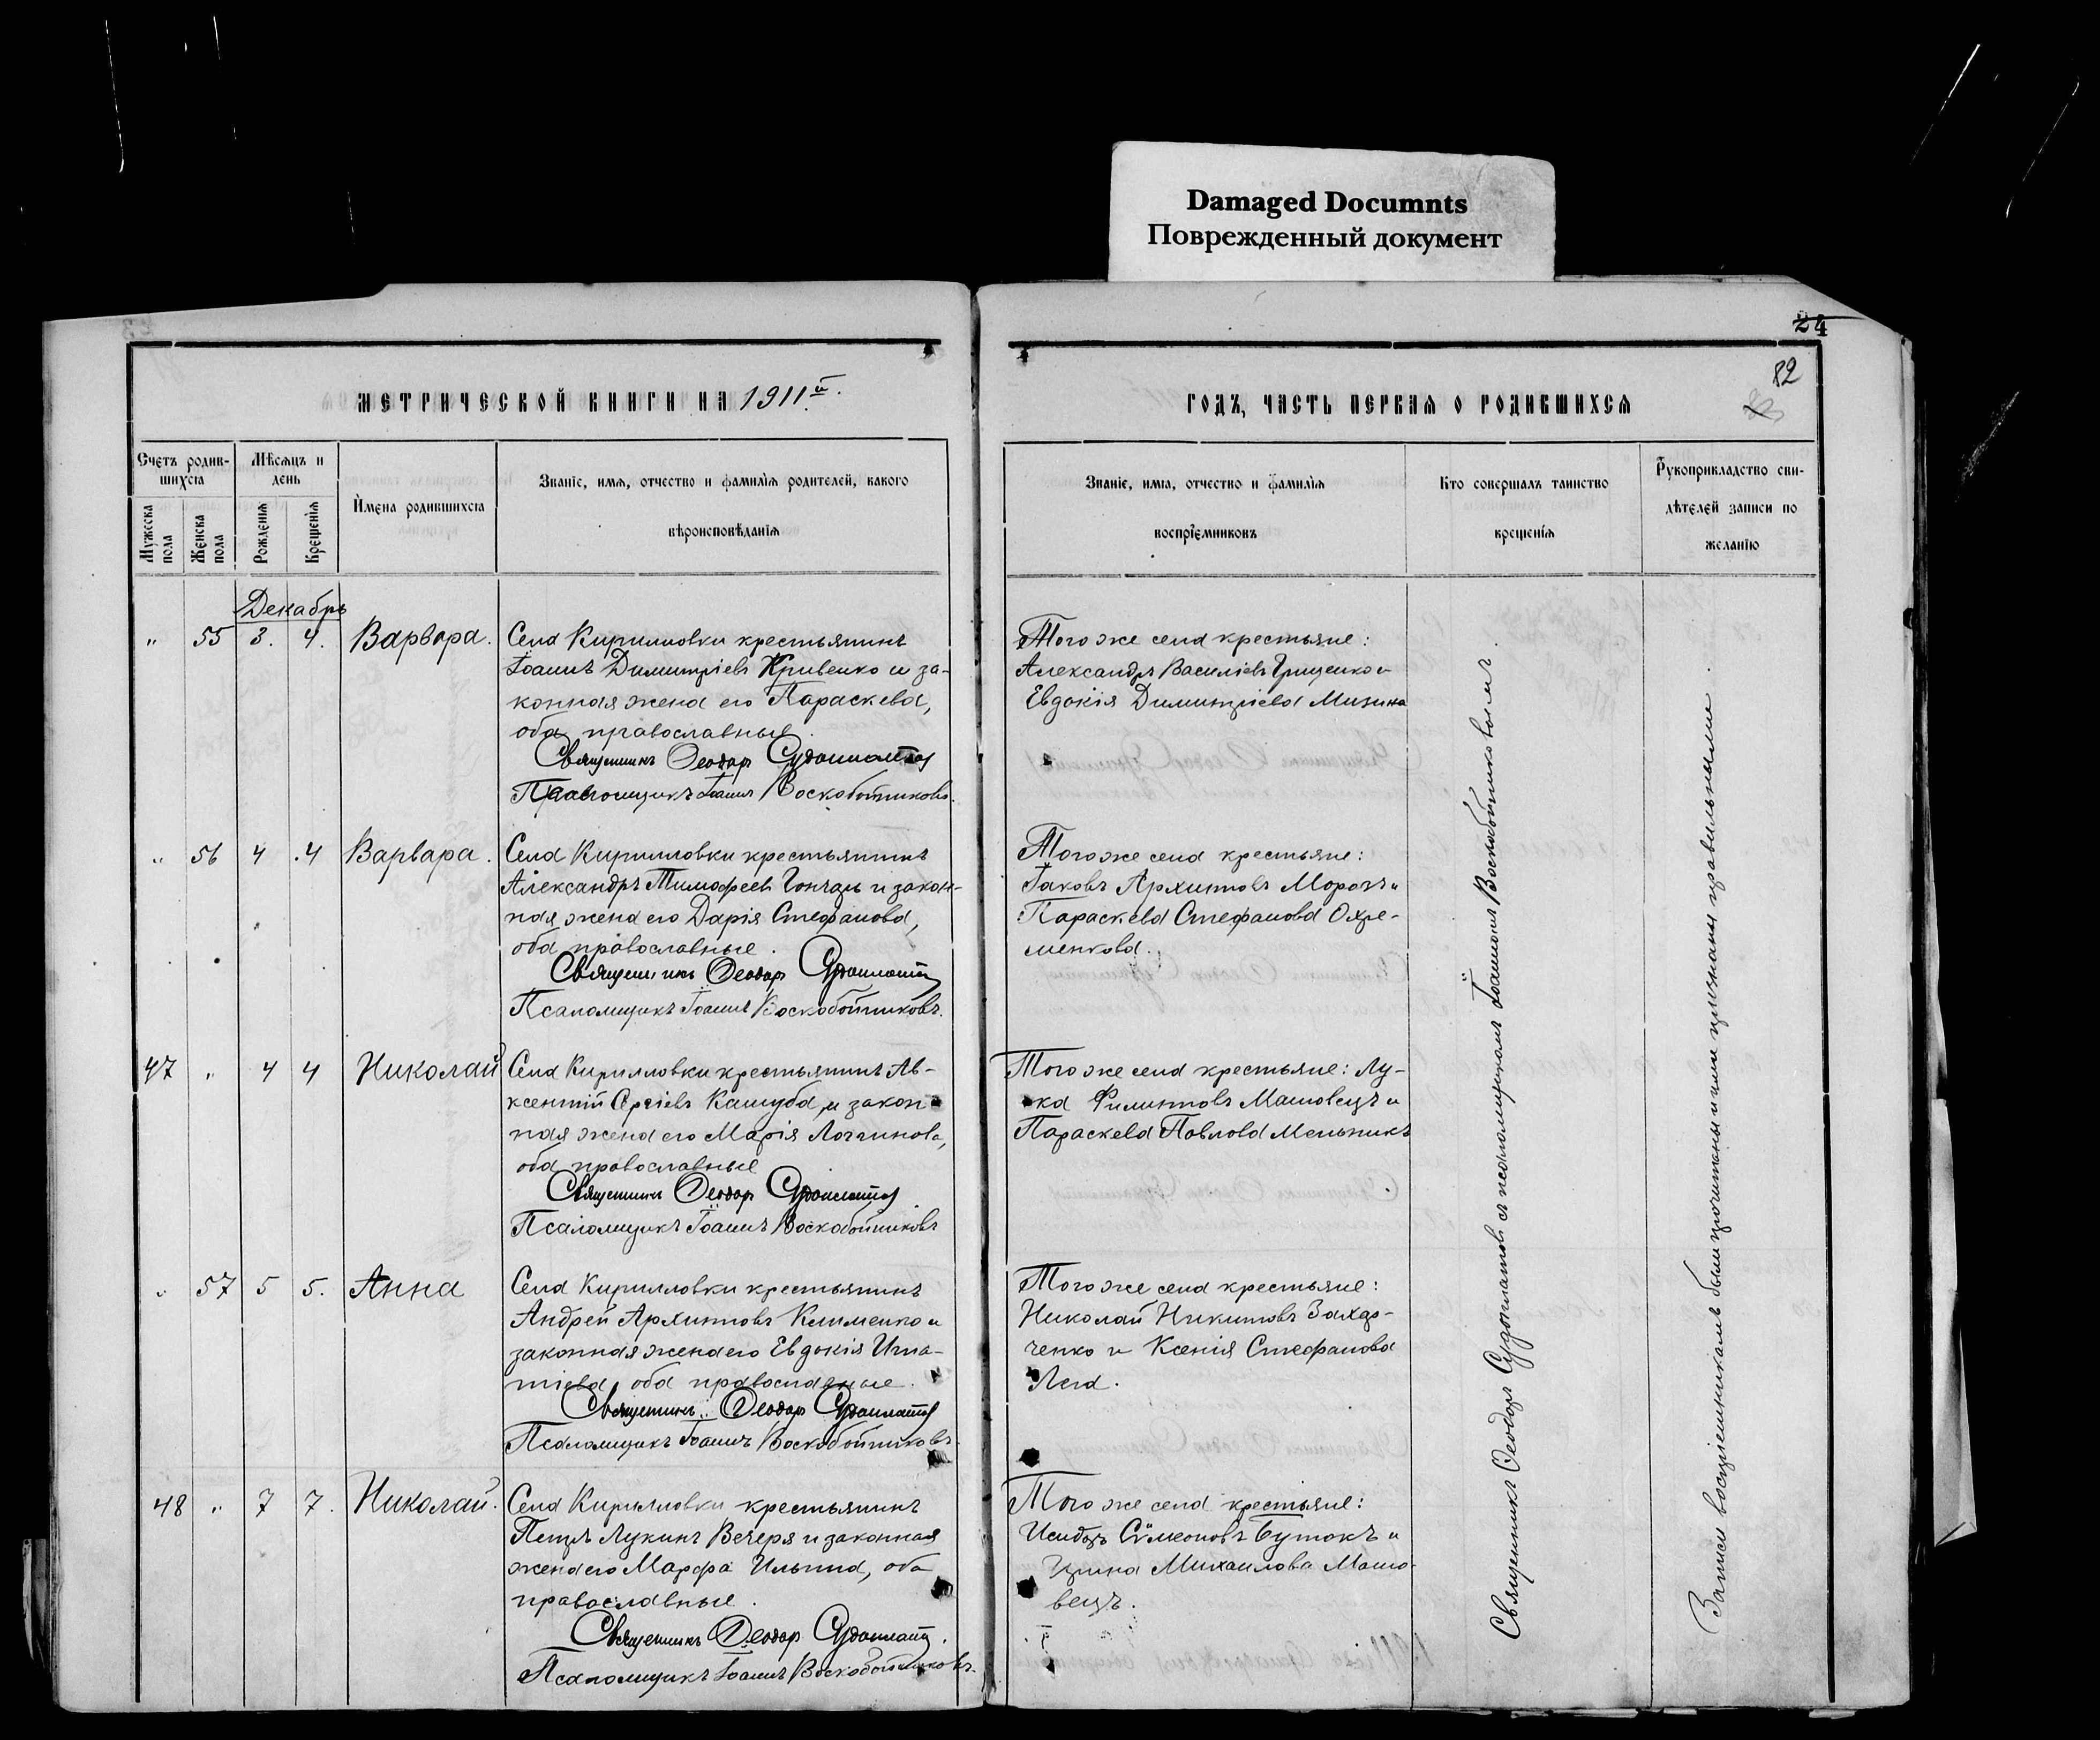 Damaged Documnts
Поврежденный документ
24
82
МЕТРИЧЕСКОЙ КНИГИ НА 1911й.
ГОДЪ, ЧАСТЬ ПЕРВАЯ О РОДИВШИХСЯ
Счетъ родив-
шихся
Мужеска пола
Женска пола
Мѣсяцъ и
день
Рожденія
Крещенія
Имена родившихся
Званіе, имя, отчество и фамилія родителей, какого
вѣроисповѣданія
Званіе, имя, отчество и фамилія
воспріемниковъ
Кто совершалъ таинство
крещенія
Рукоприкладство сви-
дѣтелей записи по
желанію
Декабрь
„ 55 3. 4. Варвара.
Села Кирилловки крестьянинъ
Іоаннъ Димитріевъ Кривенко и за-
конная жена его Параскева,
оба православные.
Священникъ Ѳеодоръ Судоплатов
Псаломщикъ Іоаннъ Воскобойниковъ.
Того же села крестьяне:
Александръ Василіевъ Грищенко и
Евдокія Димитріева Мизина
„ 56 4 4 Варвара.
Села Кирилловки крестьянинъ
Александръ Тимофеевъ Гончаръ и закон-
ная жена его Дарія Стефанова,
оба православные.
Священникъ Ѳеодоръ Судоплатов
Псаломщикъ Іоаннъ Воскобойниковъ.
Того же села крестьяне:
Іаковъ Архиповъ Морозъ и
Параскева Стефанова Охре-
менкова.
47 „ 4 4 Николай
Села Кирилловки крестьянинъ Ав-
ксентій Сергіевъ Кашуба, и закон-
ная жена его Марія Логгинова,
оба православные
Священникъ Ѳеодоръ Судоплатов
Псаломщикъ Іоаннъ Воскобойниковъ
Того же села крестьяне: Лу-
ка Филиповъ Машовецъ и
Параскева Павлова Мельникъ
„ 57 5 5. Анна
Села Кирилловки крестьянинъ
Андрей Архиповъ Клименко и
законная жена его Евдокія Игна-
тіева, оба православные.
Священникъ Ѳеодоръ Судоплатов
Псаломщикъ Іоаннъ Воскобойниковъ.
Того же села крестьяне:
Николай Никитовъ Захар-
ченко и Ксенія Стефанова
Лега.
48 „ 7 7. Николай.
Села Кирилловки крестьянинъ
Петръ Лукинъ Вечеря и законная
жена его Марфа Ильина, оба
православные.
Священникъ Ѳеодоръ Судоплатов.
Псаломщикъ Іоаннъ Воскобойниковъ.
Того же села крестьяне:
Исидоръ Сѵмеоновъ Бутокъ и
Ирина Михаилова Машо-
вецъ.
Священникъ Ѳеодоръ Судоплатовъ съ псаломщикомъ Іоанномъ Воскобойниковымъ.
Записи воспріемникамъ были прочитаны и ими признаны правильными.